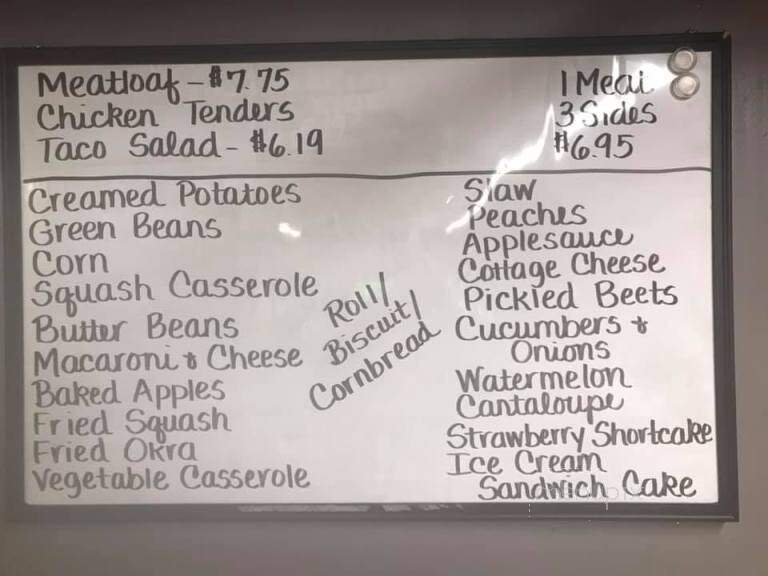 Meatloaf - $7.75
Chicken Tenders
Taco Salad - $6.19
1 Meat
3 Sides
$6.95
Creamed Potatoes
Green Beans
Corn
Squash Casserole
Butter Beans
Macaroni & Cheese
Baked Apples
Fried Squash
Fried Okra
Vegetable Casserole
Roll/
Biscuit/
Cornbread
Slaw
Peaches
Applesauce
Cottage Cheese
Pickled Beets
Cucumbers &
Onions
Watermelon
Cantaloupe
Strawberry Shortcake
Ice Cream
Sandwich Cake